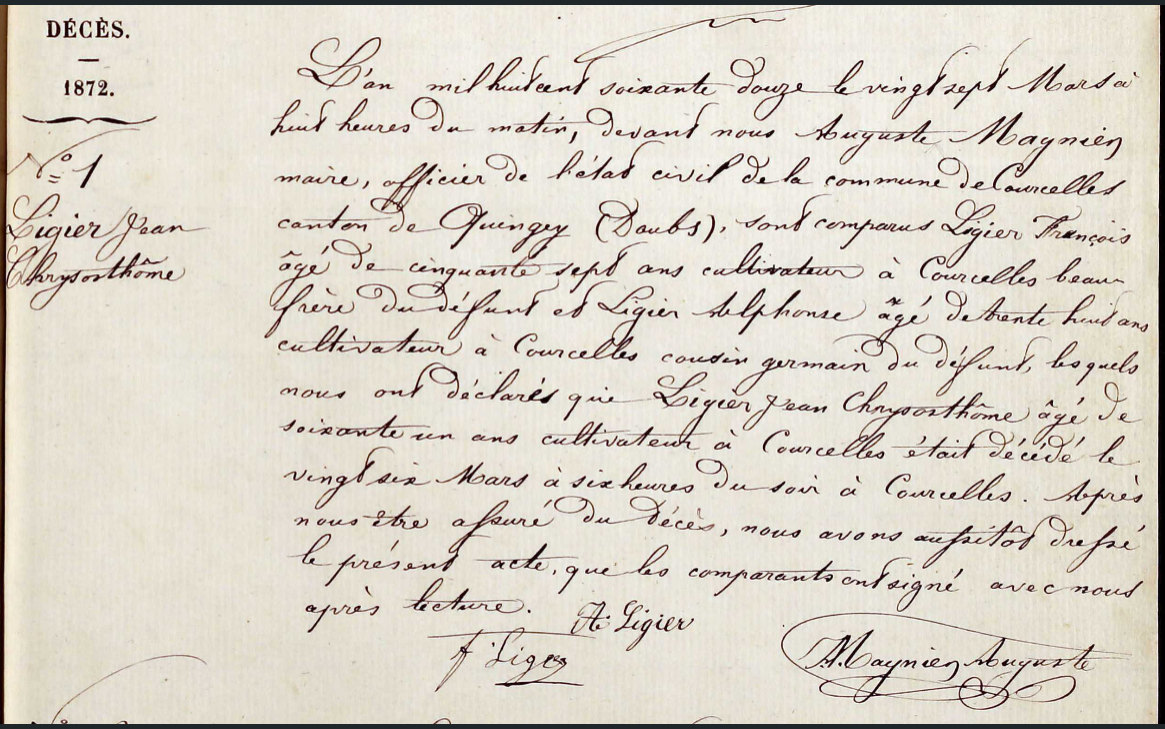 DÉCÈS.
1872.
N° 1
Ligier Jean
Chrysosthôme
L'an mil huit cent soixante douze le vingt sept Mars à
huit heures du matin, devant nous Auguste Maynier
maire, officier de l'état civil de la commune de Courcelles
canton de Quingey (Doubs), sont comparus Ligier François
âgé de cinquante sept ans cultivateur à Courcelles beau
frère du défunt et Ligier Alphonse âgé de trente huit ans
cultivateur à Courcelles cousin germain du défunt, lesquels
nous ont déclarés que Ligier Jean Chrysosthôme âgé de
soixante un ans cultivateur à Courcelles était décédé le
vingt six Mars à six heures du soir à Courcelles. Après
nous être assuré du décès, nous avons aussitôt dressé
le présent acte, que les comparants ont signé avec nous
après lecture.
A. Ligier
F. Ligier
Maynier Auguste